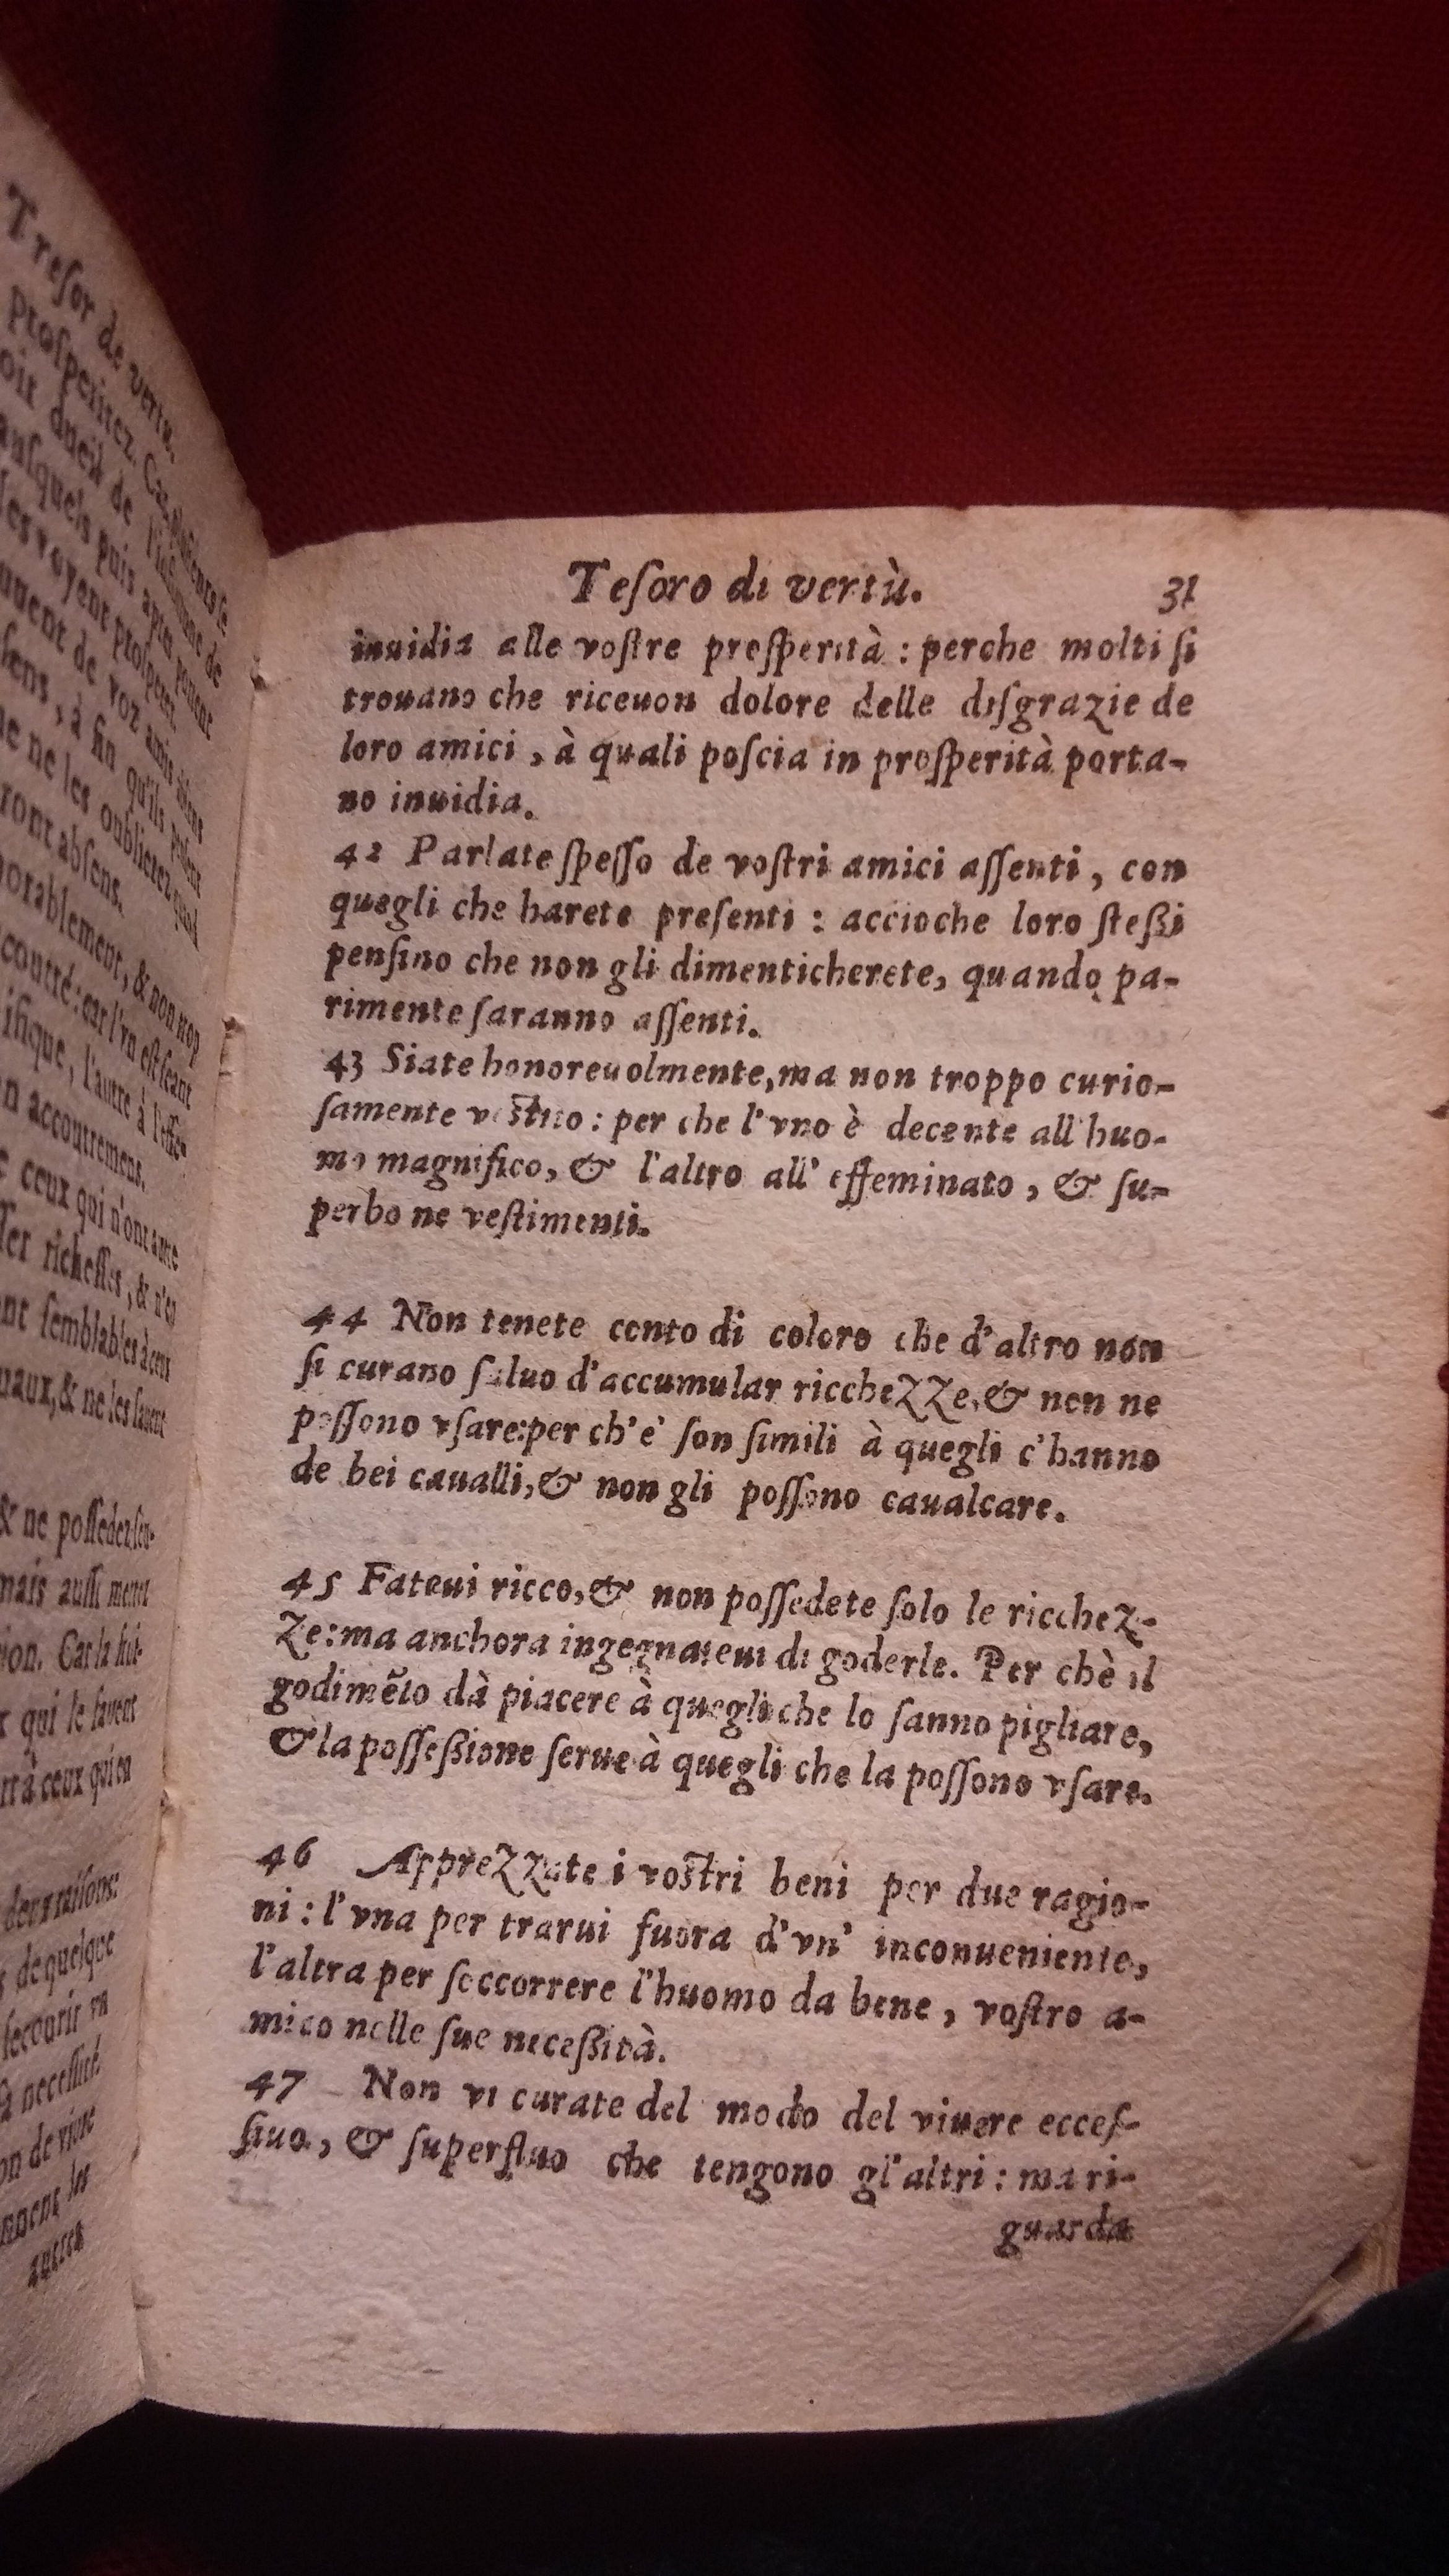 Tresor de vertu.
prosperitez.
dueil de l'infortune de
ausquels puis apres portent
les voyent prosperer.
de voz amis
à fin qu'ils
ne les oublierez quand
ront absens.
norablement, & non trop
: car l'vn est seant
ifique, l'autre à l'effe-
n accoutremens.
ceux qui n'ont autre
richesses, & n'en
semblables à ceux
uaux, & ne les
& ne possedez seu-
mais aussi mettez
ion. Car la
qui le sauent
à ceux qui en
deux raisons:
de quelque
secourir vn
necessité.
de viure
les
autres
Teſoro di vertù. 31
inuidia alle voſtre proſperità : perche molti ſi
trouano che riceuon dolore delle diſgrazie de
loro amici , à quali poſcia in proſperità porta-
no inuidia.
42 Parlate ſpeſſo de voſtri amici aſſenti , con
quegli che harete preſenti : accioche loro ſteßi
penſino che non gli dimenticherete, quando pa-
rimente ſaranno aſſenti.
43 Siate honoreuolmente, ma non troppo curio-
ſamente veſtito : per che l'vno è decente all'huo-
mo magnifico, & l'altro all' effeminato , & ſu-
perbo ne veſtimenti.
44 Non tenete conto di coloro che d'altro non
ſi curano ſaluo d'accumular ricchezze, & non ne
poſſono vſare: per ch'e' ſon ſimili à quegli c'hanno
de bei caualli, & non gli poſſono caualcare.
45 Fateui ricco, & non poſſedete ſolo le ricchez-
ze: ma anchora ingegnateui di goderle. Per chè il
godimẽto dà piacere à quegli che lo ſanno pigliare,
& la poſſeßione ſerue à quegli che la poſſono vſare.
46 Apprezzate i voſtri beni per due ragio-
ni : l'vna per trarui fuora d'vn' inconueniente,
l'altra per ſoccorrere l'huomo da bene , voſtro a-
mico nelle ſue neceßità.
47 Non vi curate del modo del viuere ecceſ-
ſiuo , & ſuperfluo che tengono gl'altri : ma ri-
guarda